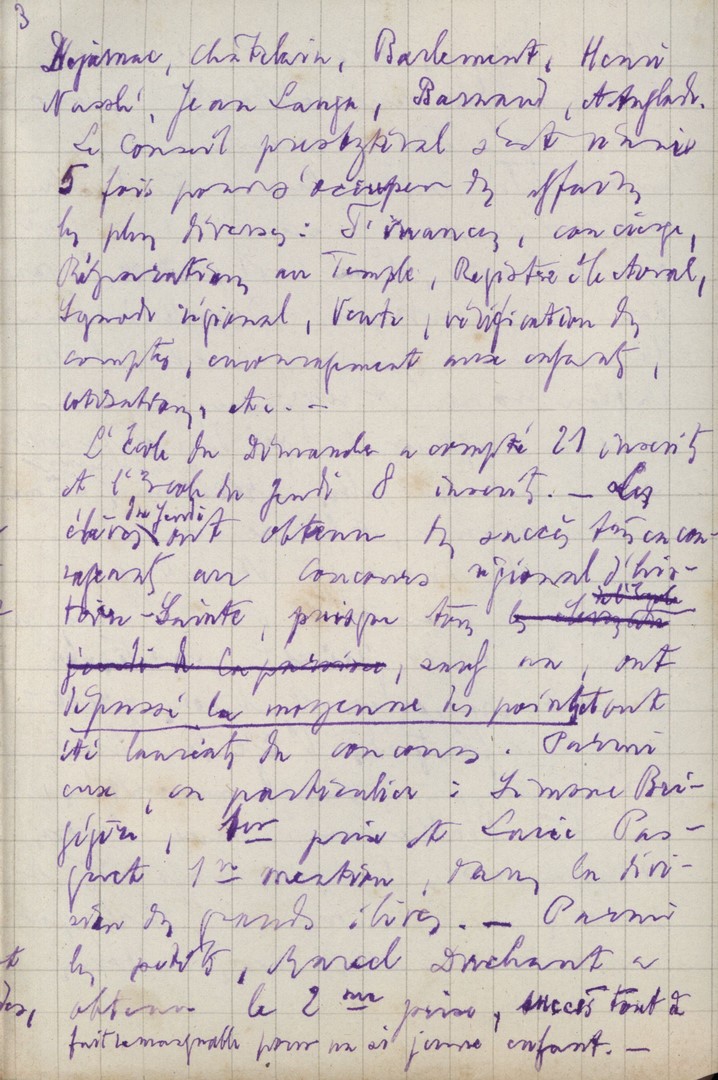 3
Dejarnac, Châtelain, Barlement, Henri
Jean Langa, Barnaud, et Anglade.
Le Conseil presbytéral s'est réuni
5 fois pour s'occuper des affaires
les plus diverses : Finances, concierge,
Réparations au Temple, Registre électoral,
Synode régional, Vente, vérification des
comptes, encouragement aux enfants,
cotisations, etc. —
L'École du Dimanche a compté 21 inscrits
et l'École du Jeudi 8 inscrits. — Les
élèves du Jeudi ont obtenu des succès très encou-
rageants au Concours régional d'his-
toire-Sainte, puisque tous les élèves de
jeudi de la paroisse, sauf un, ont
dépassé la moyenne des points et ont
été lauréats du concours. Parmi
eux, en particulier : Simone Bri-
1er prix et Lucie Pas-
quet 1re mention, dans la divi-
sion des grands élèves. — Parmi
les petits, Marcel Duchant a
obtenu le 2me prix, succès tout à
fait remarquable pour un si jeune enfant. —